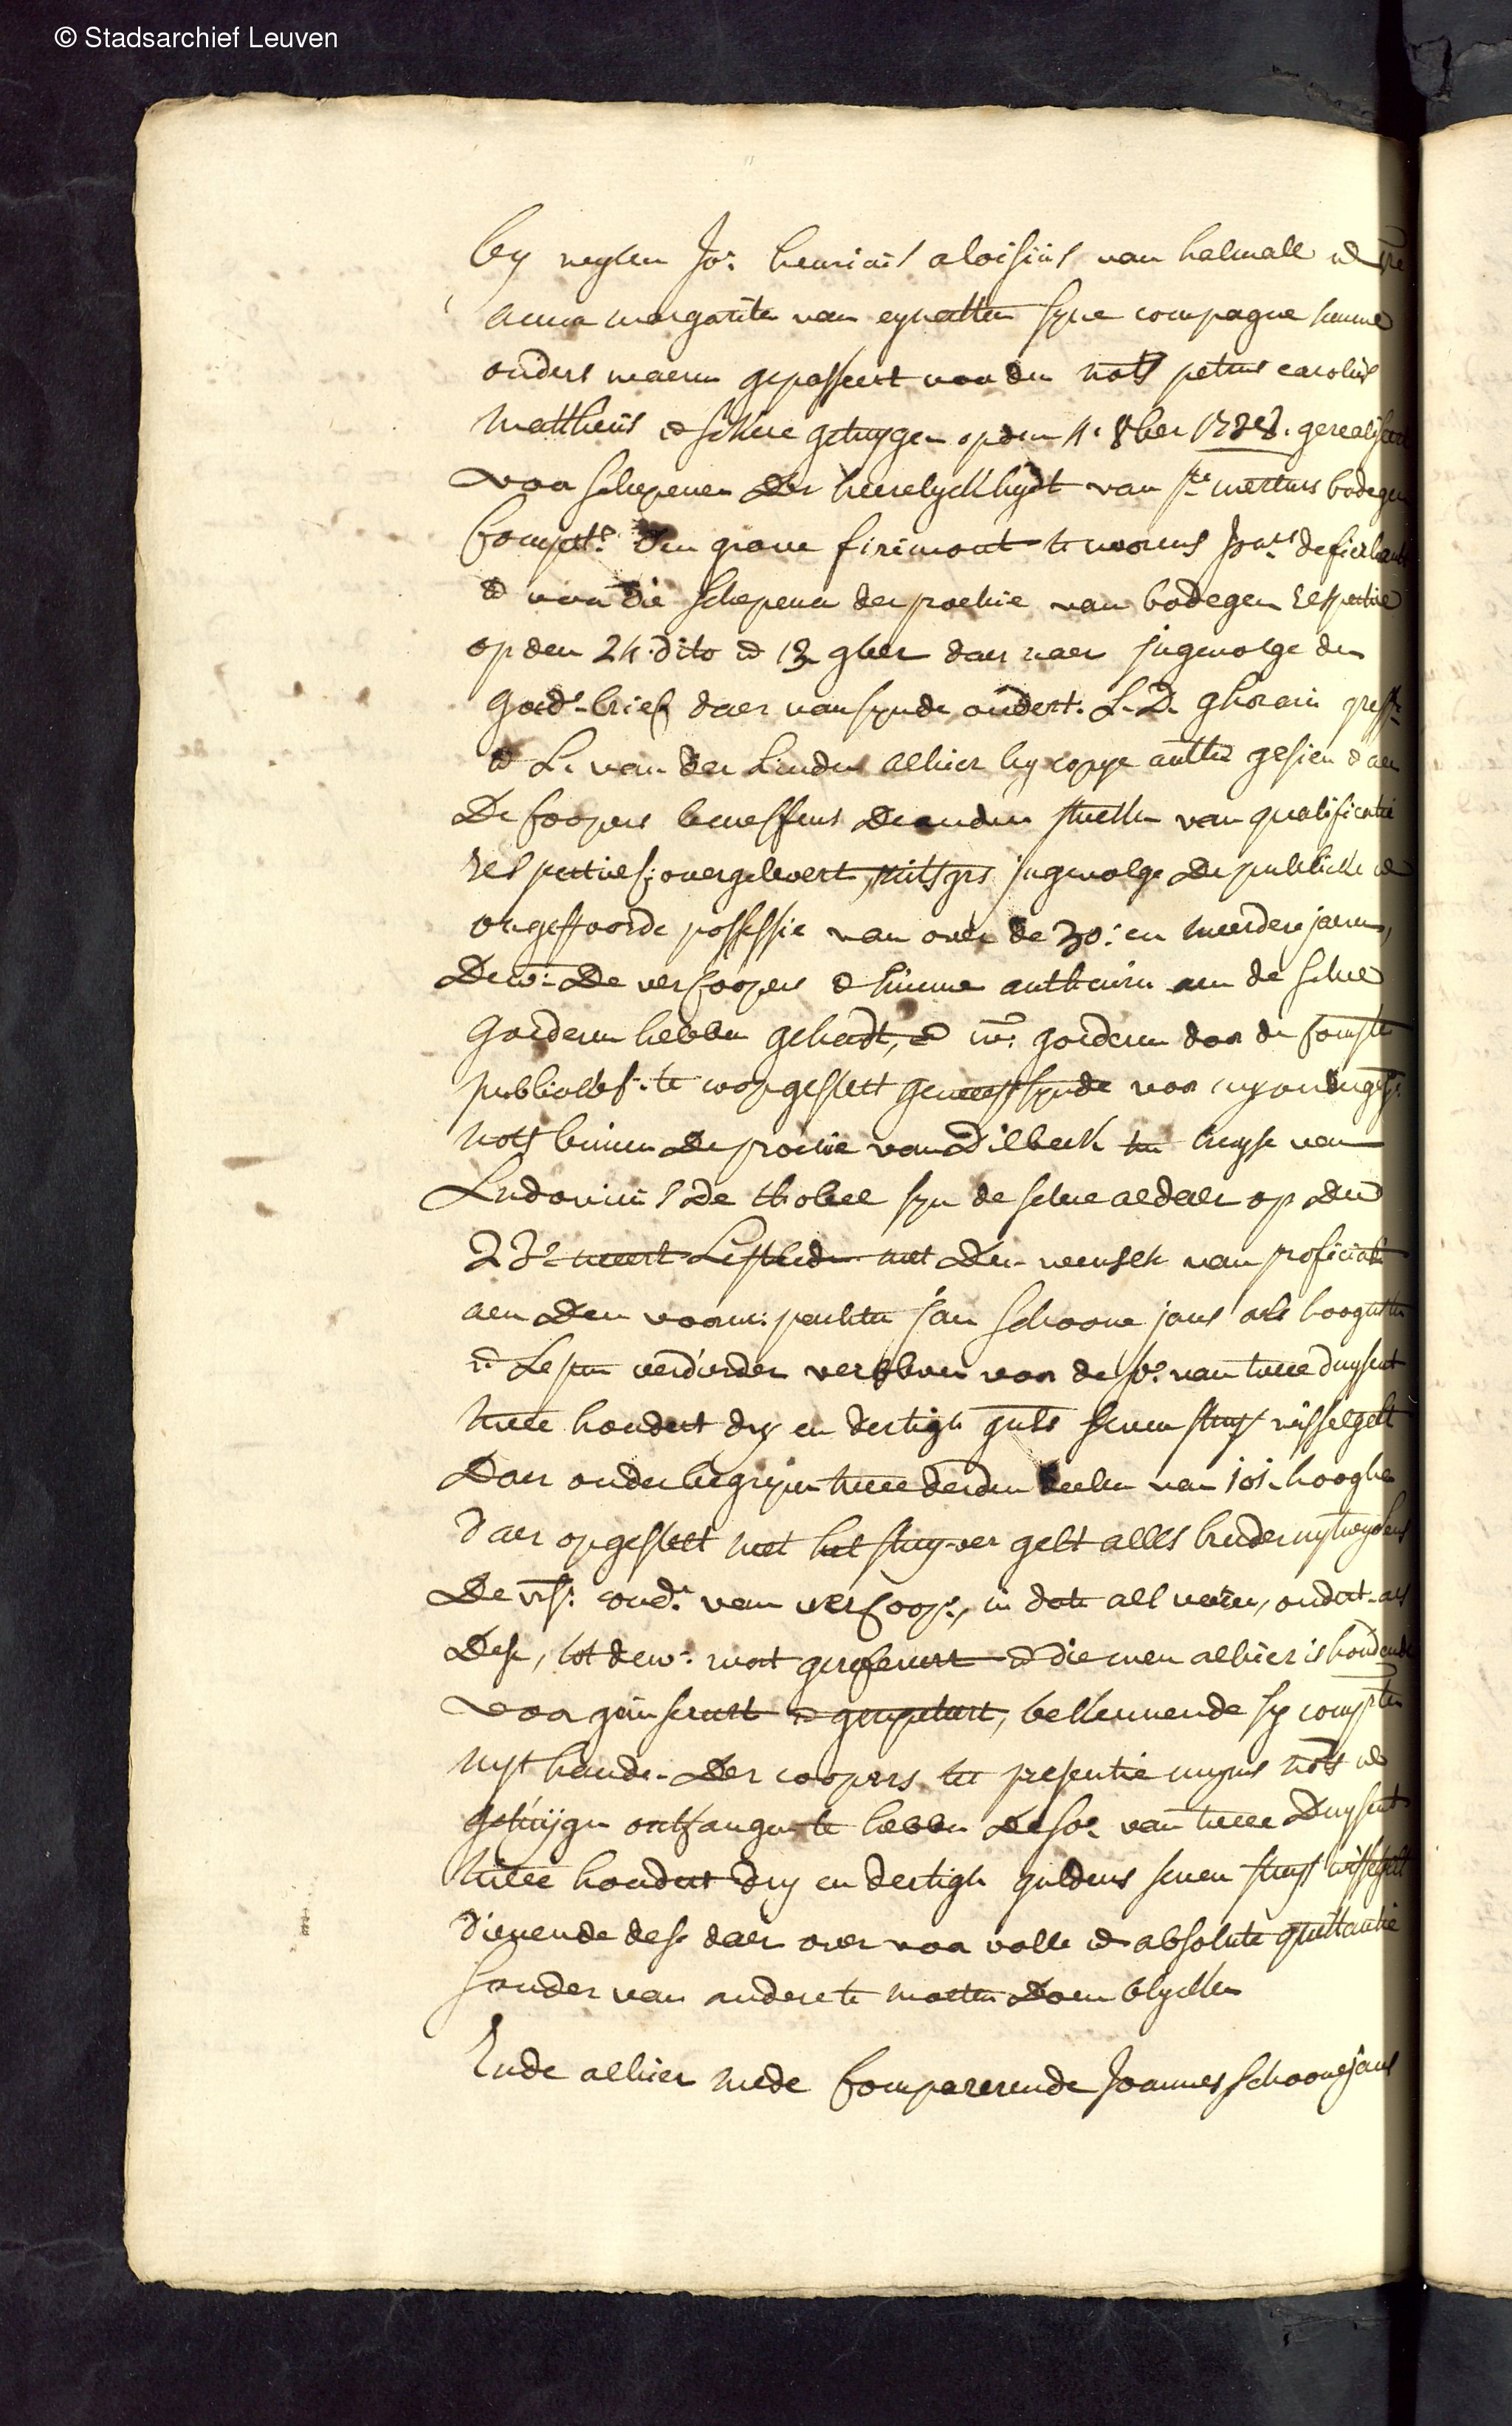 © Stadsarchief Leuven
by wylen Jor: henricus aloisius van halmall ende
anna margarita van eynatten syne compagne hunne
ouders waeren gepasseert voor den nots petrus carolus
Mattheus et sekere getuygen op den 4. 8ber 1728. gerealiseert
voor schepenen der heerelyckhydt van ste mertens bodegem
Compets den grave firimont te vorens Joncr de fierlant
et voor die schepenen der prochie van bodegem respective
op den 24. dito et 13 9ber daer naer ingevolge den
goed. brief daer van synde ondert. L. D. ghorain greffr
et L. van der Linden alhier by copye autten gesien et aen
De coopers beneffens de andere stucken van qualificatie
respectivel: overgelevert, mitsgrs ingevolge de publicke et
ongestoorde possessie van over de 30: en meerdere jaeren,
Dew: De vercoopers et hunne autheurs aen de selve
goederen hebben gehadt, et w: goederen door de compten
publicqlyck te coop gestelt geweest synde voor my ondergess:
nots binnen de prochie van dilbeeck ten huyse van
Ludovicus De thobel syn de selve aldaer op den
23e meert Lestleden met den wensch van proficiat
aen den voorn: pachter jan schoone jans als hoogsten
et Lesten verdierder verbleven voor de so: van twee duysent
twee hondert dry en dertigh guls seven stuyv wisselgelt
Daer onder begrepen twee derden deelen van 101. hooghen
daer op gestelt met het stuyver gelt alles breeder uytwysens
De vs: cond: van vercoop., in date als voren, ondert. als
Dese, tot dew: wort gerefereert et die men alhier is houdende
voor geinsereert et gerepeteert, bekennende sy compten
uyt handen der coopers ter presentie myns nots et
getuygen ontfangen te hebben de so: van twee Duysent
twee hondert dry en dertigh guldens seven stuyv wisselgelt
dienende dese daer over voor volle et absolute quittantie
sonder van andere te moeten doen blycken
Ende alhier mede Comparerende Joannes schoonejans